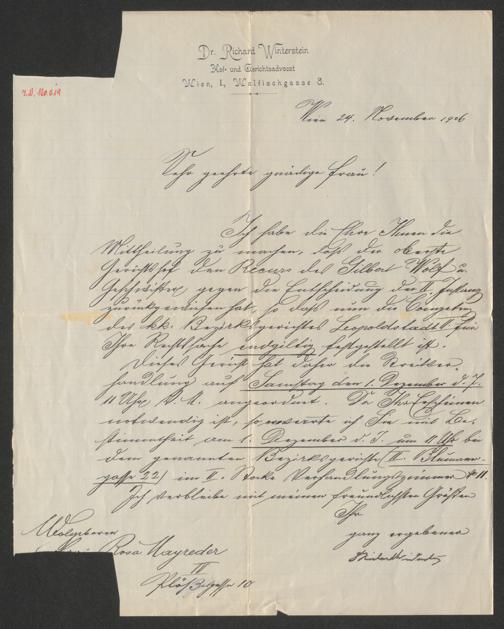 Dr. Richard Winterstein
Hof- und Gerichtsadvocat
Wien, I., Walfischgasse 8.
Wien 24. November 1906
Sehr geehrte gnädige Frau!
Ich habe die Ehre Ihnen die
Mittheilung zu machen, daß der oberste
Gerichtshof den Recurs des Gilbert Wolf u.
Geschwister gegen die Entscheidung der II. Instanz
zurückgewiesen hat, so daß nun die Competenz
des kk. Bezirksgerichtes Leopoldstadt I für
Ihre Rechtssache endgiltig festgestellt ist.
Dieses Gericht hat daher die Streitver-
handlung auf Samstag den 1. Dezember d. J.
11 Uhr V. M. angeordnet. Da Ihr Erscheinen
notwendig ist, so erwarte ich Sie mit Be-
stimmtheit am 1. Dezember d. J. um 11 Uhr bei
dem genannten Bezirksgerichte (II. Blumauer-
gasse 22) im II. Stocke Verhandlungszimmer № 11.
Ich verbleibe mit meinen freundlichsten Grüßen
Ihr
ganz ergebener
Wolgeboren
Rosa Mayreder
IV
Plößlgasse 10